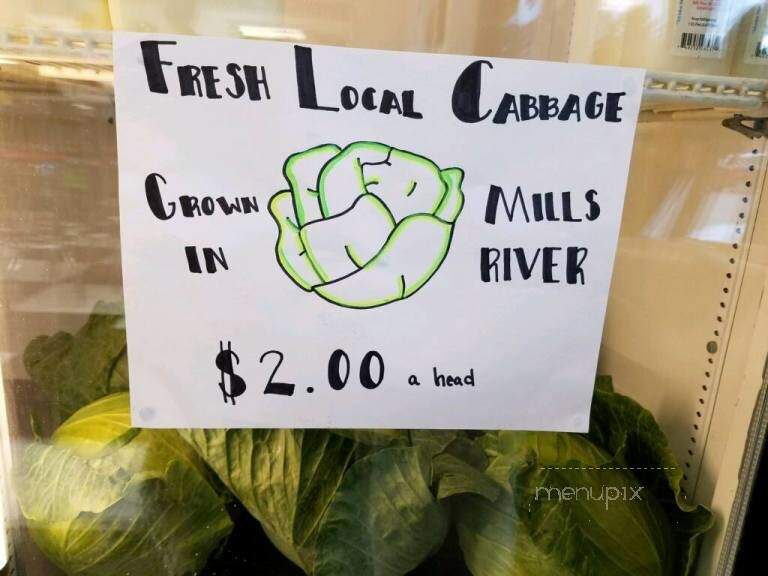 FRESH LOCAL CABBAGE
GROWN MILLS
IN RIVER
$2.00 a head
menupix